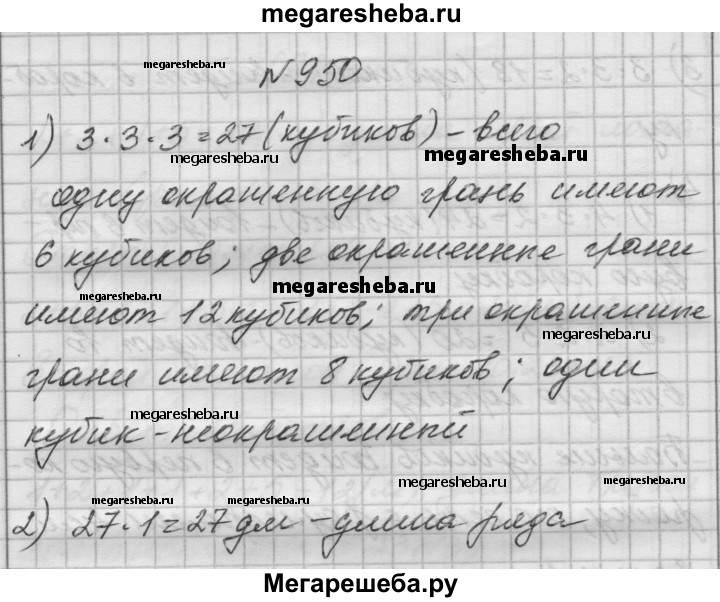 megaresheba.ru
megaresheba.ru
N 950
1) 3·3·3=27 (кубиков) – всего
megaresheba.ru
megaresheba.ru
одну окрашенную грань имеют
6 кубиков; две окрашенные грани
megaresheba.ru
megaresheba.ru
имеют 12 кубиков; три окрашенные
megaresheba.ru
грани имеют 8 кубиков; один
megaresheba.ru
кубик – неокрашенный
megaresheba.ru
megaresheba.ru
megaresheba.ru
2) 27·1=27 дм – длина ряда
Мегарешеба.ру